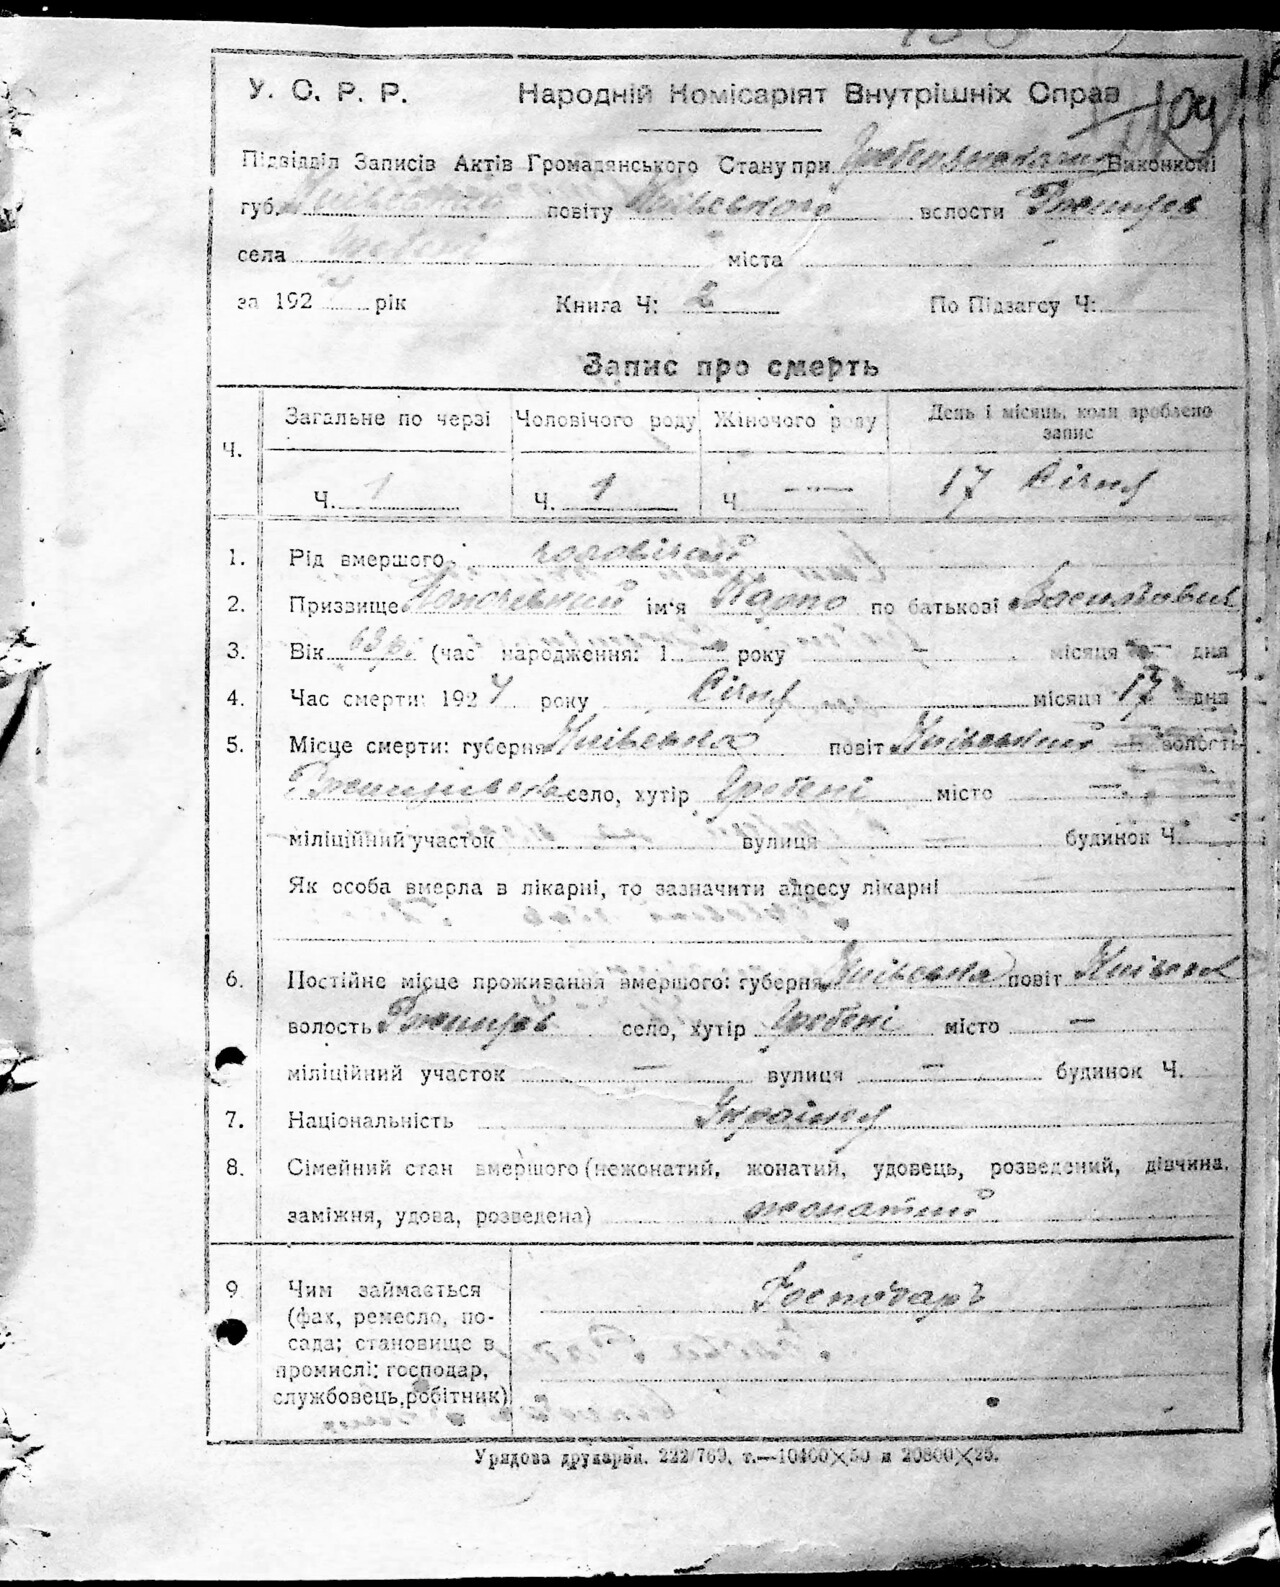 У. С. Р. Р. Народній Комісаріят Внутрішніх Справ
Підвідділ Записів Актів Громадянського Стану при Виконкомі
губ. повіту Київського волости
села Гребені міста
за 192 рік Книга Ч: 2 По Підзагсу Ч:
Запис про смерть
Ч. Загальне по черзі Чоловічого роду Жіночого роду День і місяць, коли зроблено запис
Ч. 1 Ч. 1 Ч. — 17 Січня
1. Рід вмершого: чоловічий
2. Призвище ім'я Карпо по батькові Васильович
3. Вік 63 р. (час народження: 1 — року — місяця — дня
4. Час смерти: 1924 року Січня місяця 17 дня
5. Місце смерти: губерня Київська повіт Київський волость
село, хутір Гребені місто —
міліційний участок вулиця — будинок Ч.
Як особа вмерла в лікарні, то зазначити адресу лікарні —
6. Постійне місце проживання вмершого: губерня Київська повіт
волость село, хутір Гребені місто —
міліційний участок — вулиця — будинок Ч.
7. Національність
8. Сімейний стан вмершого (нежонатий, жонатий, удовець, розведений, дівчина,
заміжня, удова, розведена) жонатий
9 Чим займається Господарь
(фах, ремесло, по-
сада; становище в
промислі: господар,
службовець, робітник)
Урядова друкарня. 222/769, т.—10400×50 и 20800×25.